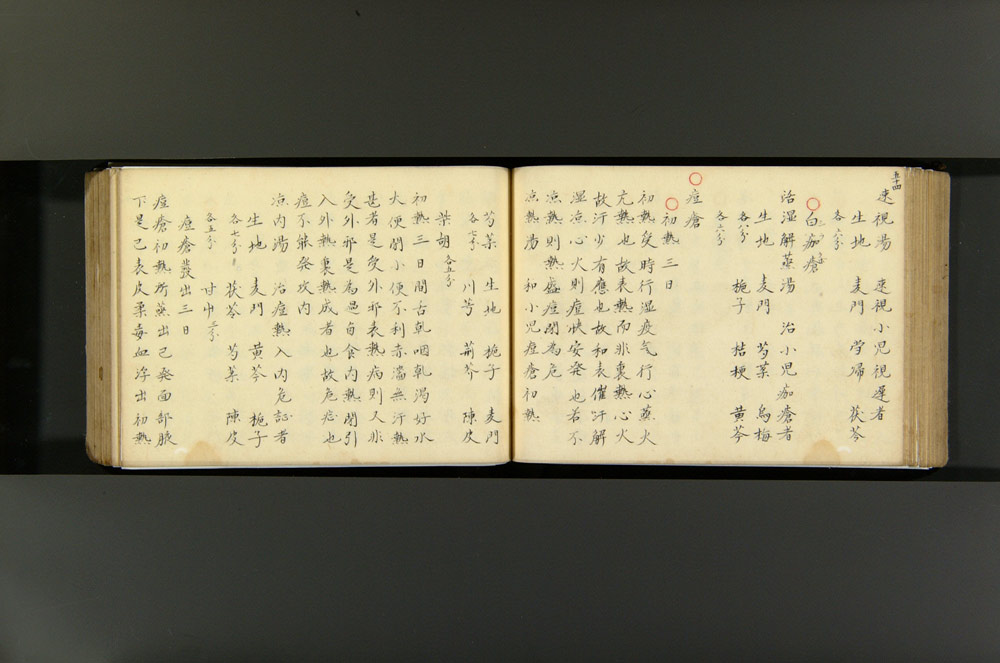 五十四
速視湯 速視小児視遅者
生地 麦門 当帰 茯苓
各六分
白痂瘡
治湿解蒸湯 治小児痂瘡者
生地 麦門 芍薬 烏梅
各八分 梔子 桔梗 黄芩
各六分
痘瘡
初熱三日
初熱受時行湿疫气行心蒸火
亢熱也故表熱而非裏熱心火
故汗少有應也故和表催汗解
湿凉心火則痘快安発也若不
凉熱則熱盛痘閉為危
凉熱湯 和小児痘瘡初熱
芍薬 生地 梔子 麦門
各七分 川芎 荊芥 陳皮
柴胡 各五分
初熱三日間舌乾咽乾渇好水
大便閉小便不利赤濇無汗熱
甚者是受外邪表熱病則又非
受外邪是為過自食内熱閉引
入外熱裏熱成者也故危症也
痘不能発攻内
凉内湯 治痘熱入内危証者
生地 麦門 黄芩 梔子
各七分 茯苓 芍薬 陳皮
各五分 甘中 三分
痘瘡発出三日
痘瘡初熱所蒸出已発面部腋
下是已表皮栗毒血浮出初熱